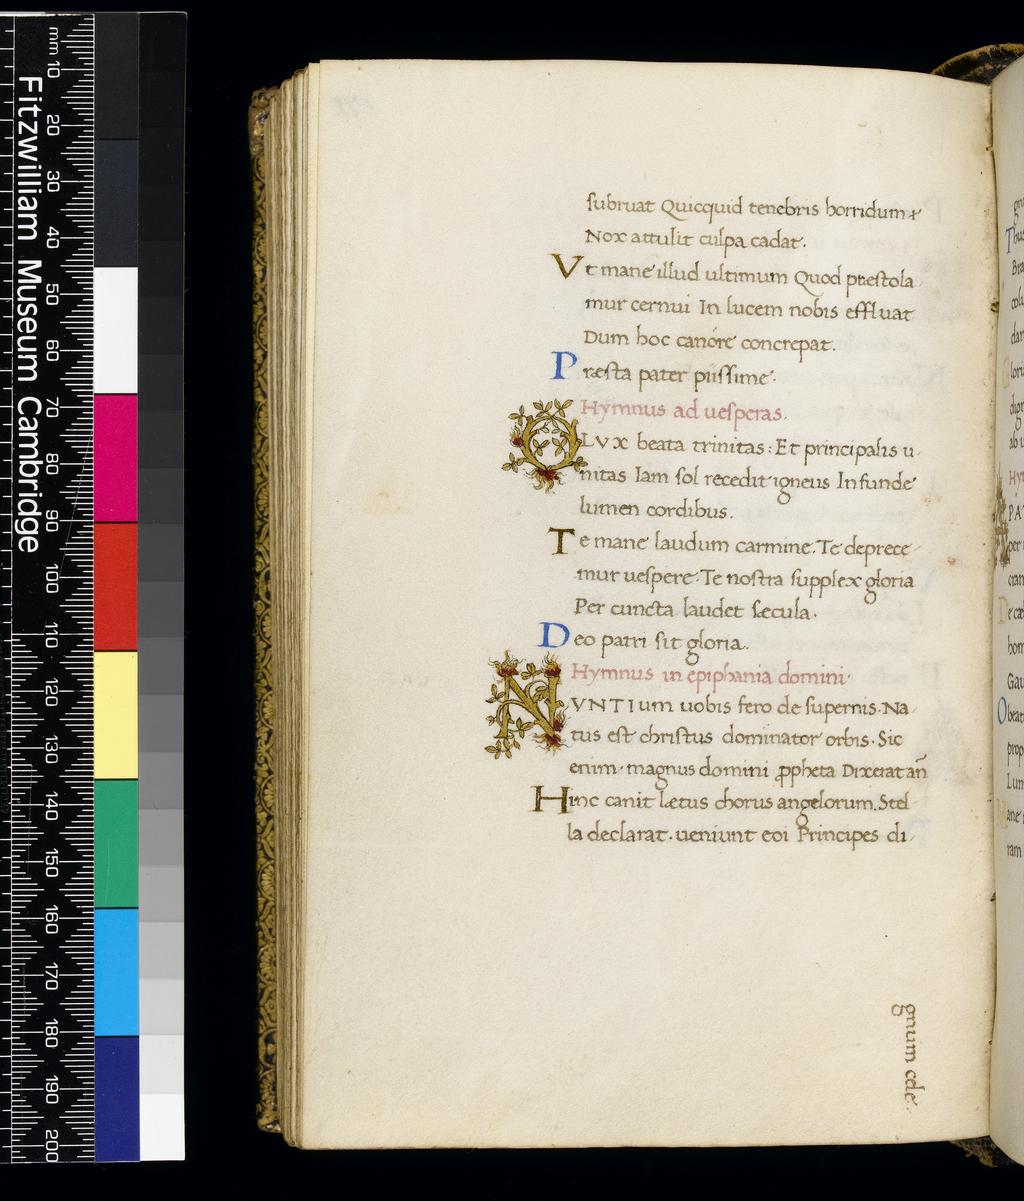 mm 10 20 30 40 50 60 70 80 90 100 110 120 130 140 150 160 170 180 190 200
Fitzwilliam Museum Cambridge
subruat Quicquid tenebris horridum
Nox attulit culpa cadat.
Vt mane illud ultimum Quod præstola
mur cernui In lucem nobis effluat
Dum hoc canóre concrepat.
Præsta pater piissime.
Hymnus ad uesperas.
O LVX beata trinitas: Et principalis u
nitas Iam sol recedit igneus Infunde
lumen cordibus.
Te mane laudum carmine. Te deprece
mur uespere. Te nostra supplex gloria
Per cuncta laudet sæcula.
Deo patri sit gloria.
Hymnus in epiphania domini.
NVNTIum uobis fero de supernis. Na
tus est christus dominator orbis. Sic
enim magnus domini ꝓpheta Dixerat
Hinc canit lætus chorus angelorum. Stel
la declarat. ueniunt eoi Principes di
gnum cele